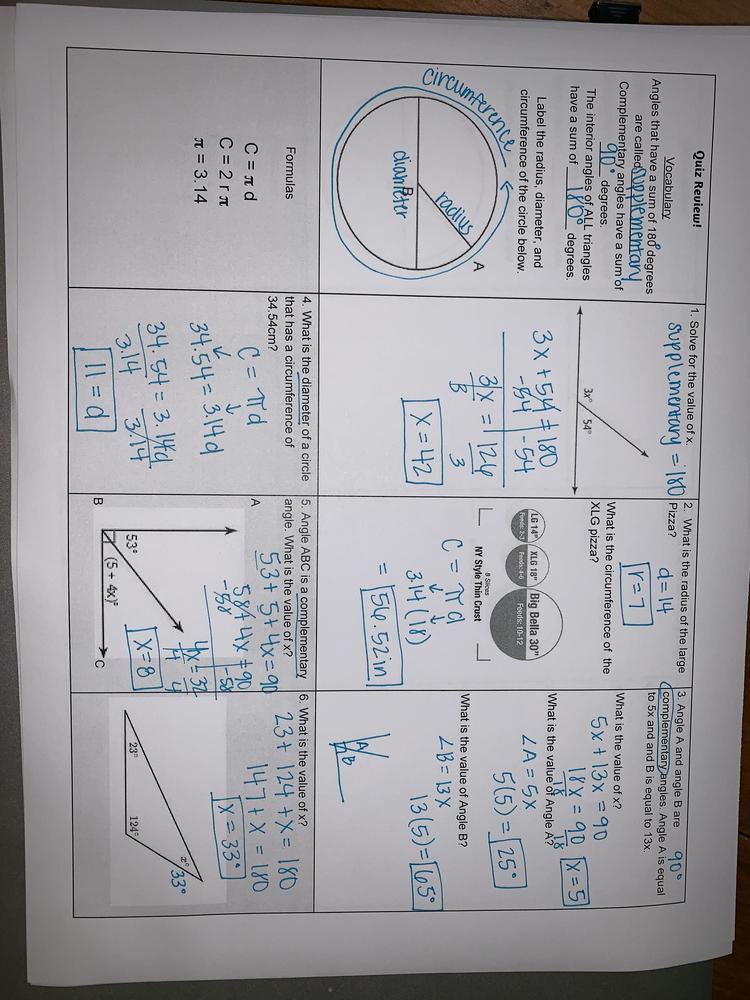 Quiz Review!
Vocabulary
Angles that have a sum of 180° degrees
are called supplementary
Complementary angles have a sum of
90° degrees.
The interior angles of ALL triangles
have a sum of 180° degrees.
Label the radius, diameter, and
circumference of the circle below.
circumference
A
radius
B
diameter
Formulas
C = π d
C = 2 r π
π = 3.14
1. Solve for the value of x.
supplementary = 180
3x° 54°
3x + 54 = 180
-54 -54
3x = 126
3 3
x = 42
2. What is the radius of the large
Pizza?
d = 14
r = 7
What is the circumference of the
XLG pizza?
LG 14"
Feeds: 2-3
XLG 18"
Feeds: 4-6
Big Bella 30"
Feeds: 10-12
8 Slices
NY Style Thin Crust
C = π d
3.14 (18)
= 56.52in
3. Angle A and angle B are 90°
complementary angles. Angle A is equal
to 5x and and B is equal to 13x.
What is the value of x?
5x + 13x = 90
18x = 90
18 18
x = 5
What is the value of Angle A?
∠A = 5x
5(5) = 25°
What is the value of Angle B?
∠B = 13x
13(5) = 65°
A
B
4. What is the diameter of a circle
that has a circumference of
34.54cm?
C = πd
34.54 = 3.14d
34.54 = 3.14d
3.14 3.14
11 = d
5. Angle ABC is a complementary
angle. What is the value of x?
53 + 5 + 4x = 90
58 + 4x = 90
-58 -58
4x = 32
4 4
x = 8
A
53°
(5 + 4x)°
B
C
6. What is the value of x?
23 + 124 + x = 180
147 + x = 180
x = 33°
23°
124°
x°
33°